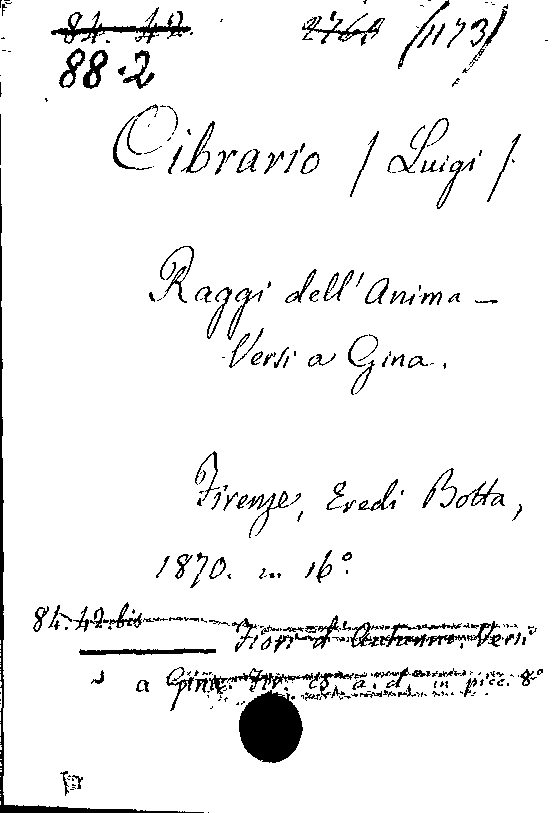 84. 42 2768 (1173)
88.2
Cibrario / Luigi /.
Raggi dell'Anima —
Versi a Gina.
Firenze, Eredi Botta,
1870. in 16°.
84.42.bis Fiori d'Autunno. Versi
a Gina. Fir. es. a. d. in picc. 8°